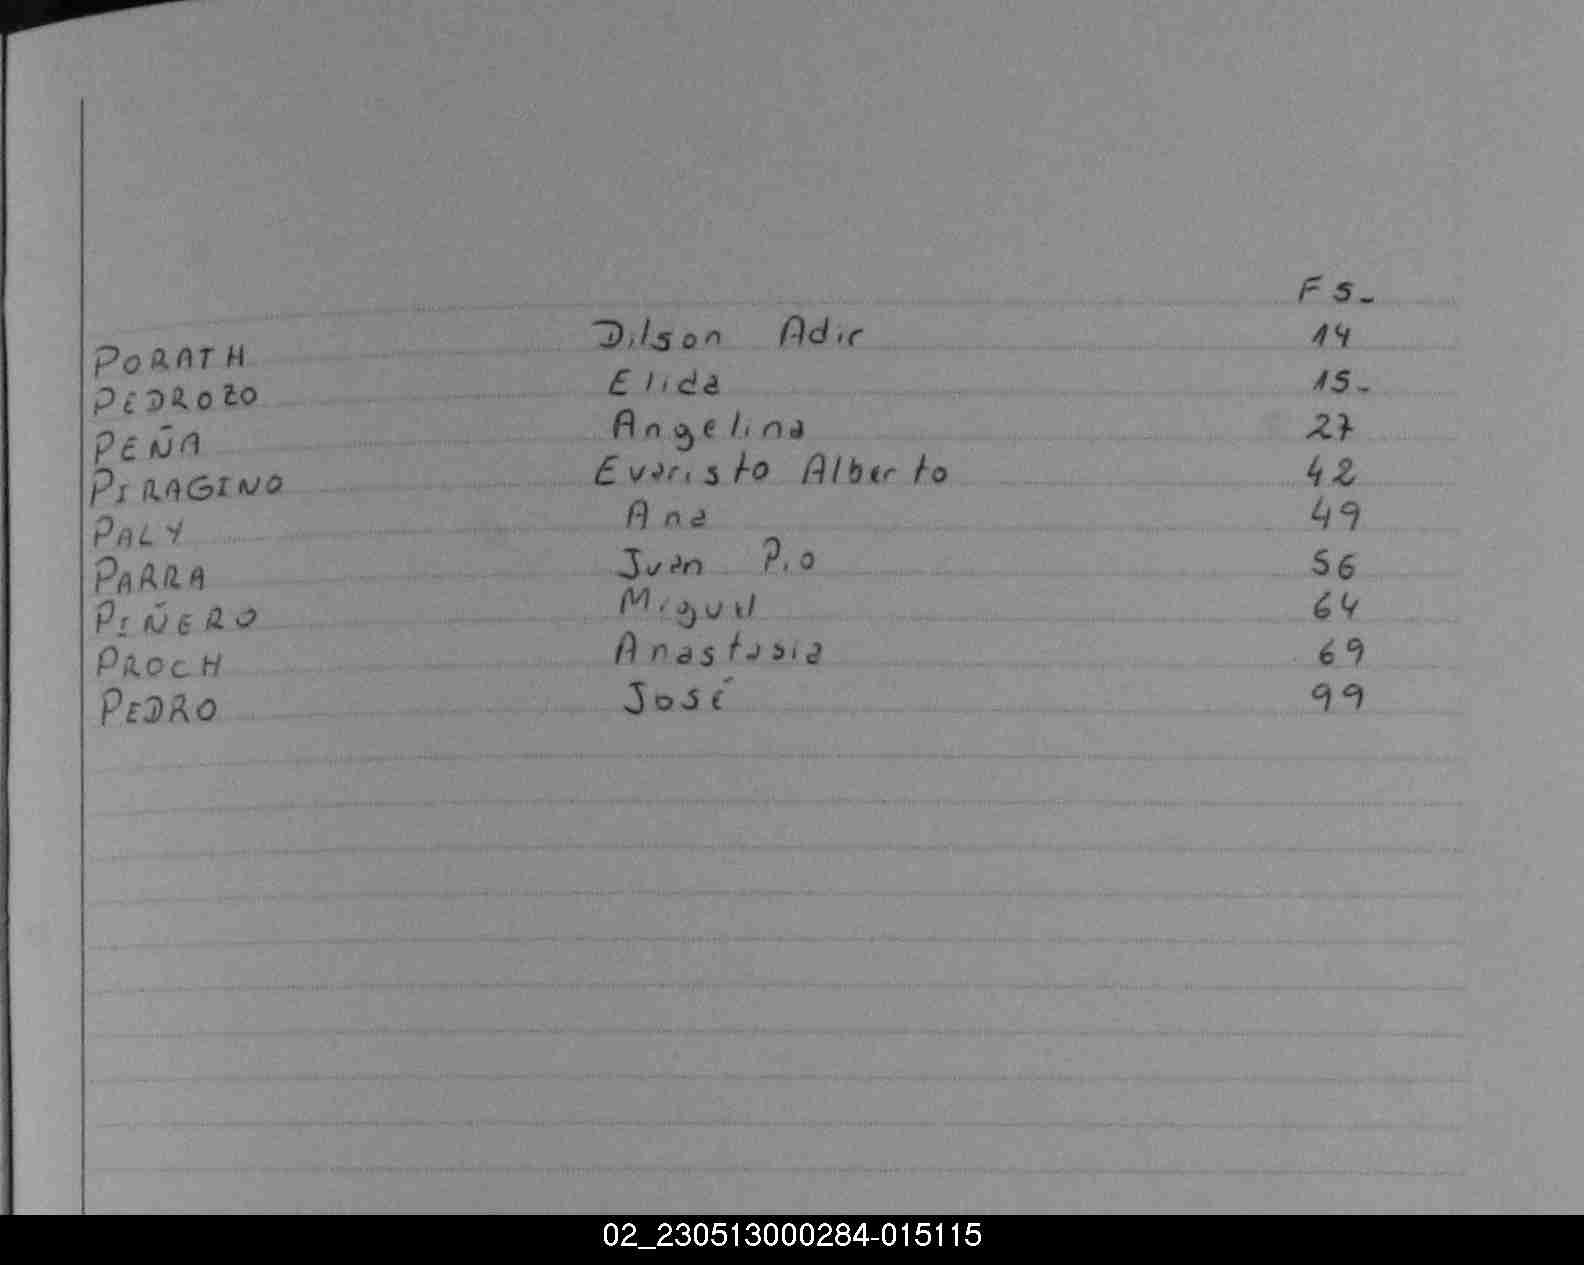 Fs-
PORATH Dilson Adir 14
PEDROZO Elida 15-
PEÑA Angelina 27
PIRAGINO Evaristo Alberto 42
PALY Ana 49
PARRA Juan Pio 56
PIÑERO Miguel 64
PROCH Anastasia 69
PEDRO José 99
02_230513000284-015115